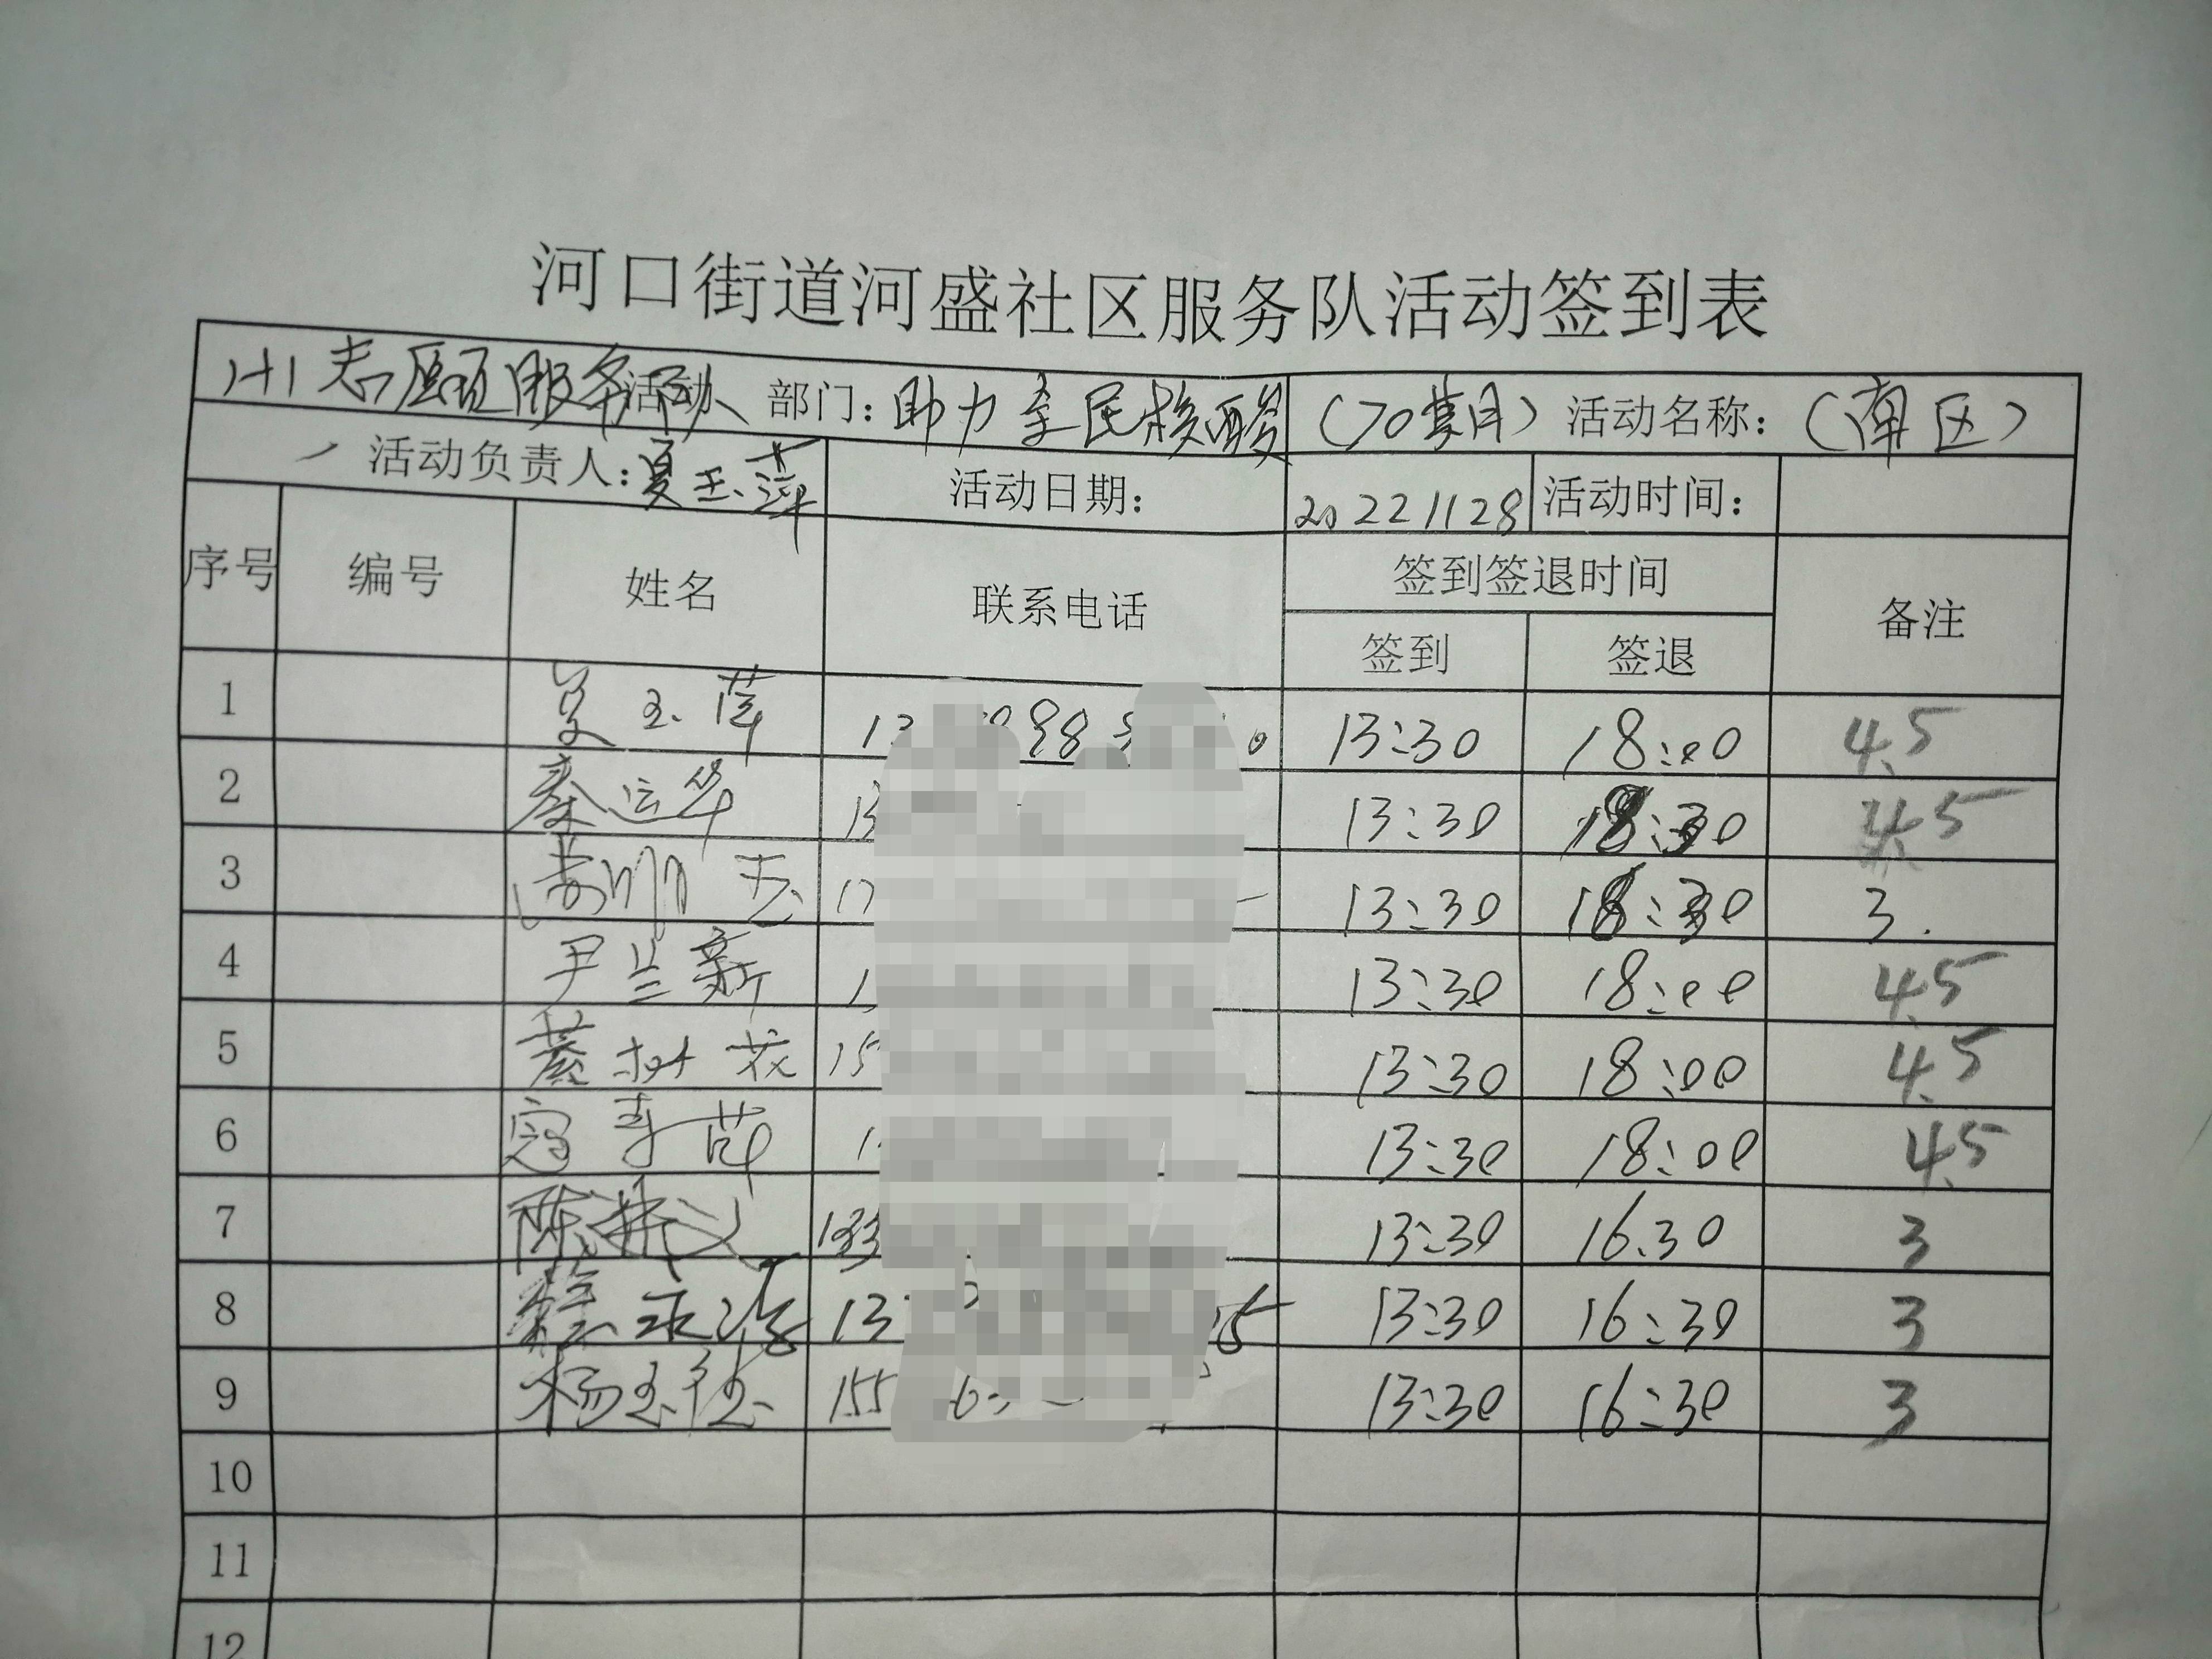 河口街道河盛社区服务队活动签到表
1+1志愿服务队 活动 部门: 助力全民核酸 (70 ) 活动名称: (南区)
活动负责人: 夏玉萍 活动日期: 20221128 活动时间:
序号 编号 姓名 联系电话 签到签退时间 备注
签到 签退
1 夏玉萍 13:30 18:00 4.5
2 秦运华 13 13:30 4.5
3 17 13:30 3.
4 尹兰新 1 13:30 18:00 4.5
5 树花 15 13:30 18:00 4.5
6 寇春苗 1 13:30 18:00 4.5
7 陈 133 13:30 16.30 3
8 13 5 13:30 16:30 3
9 杨玉 155 13:30 16:30 3
10
11
12